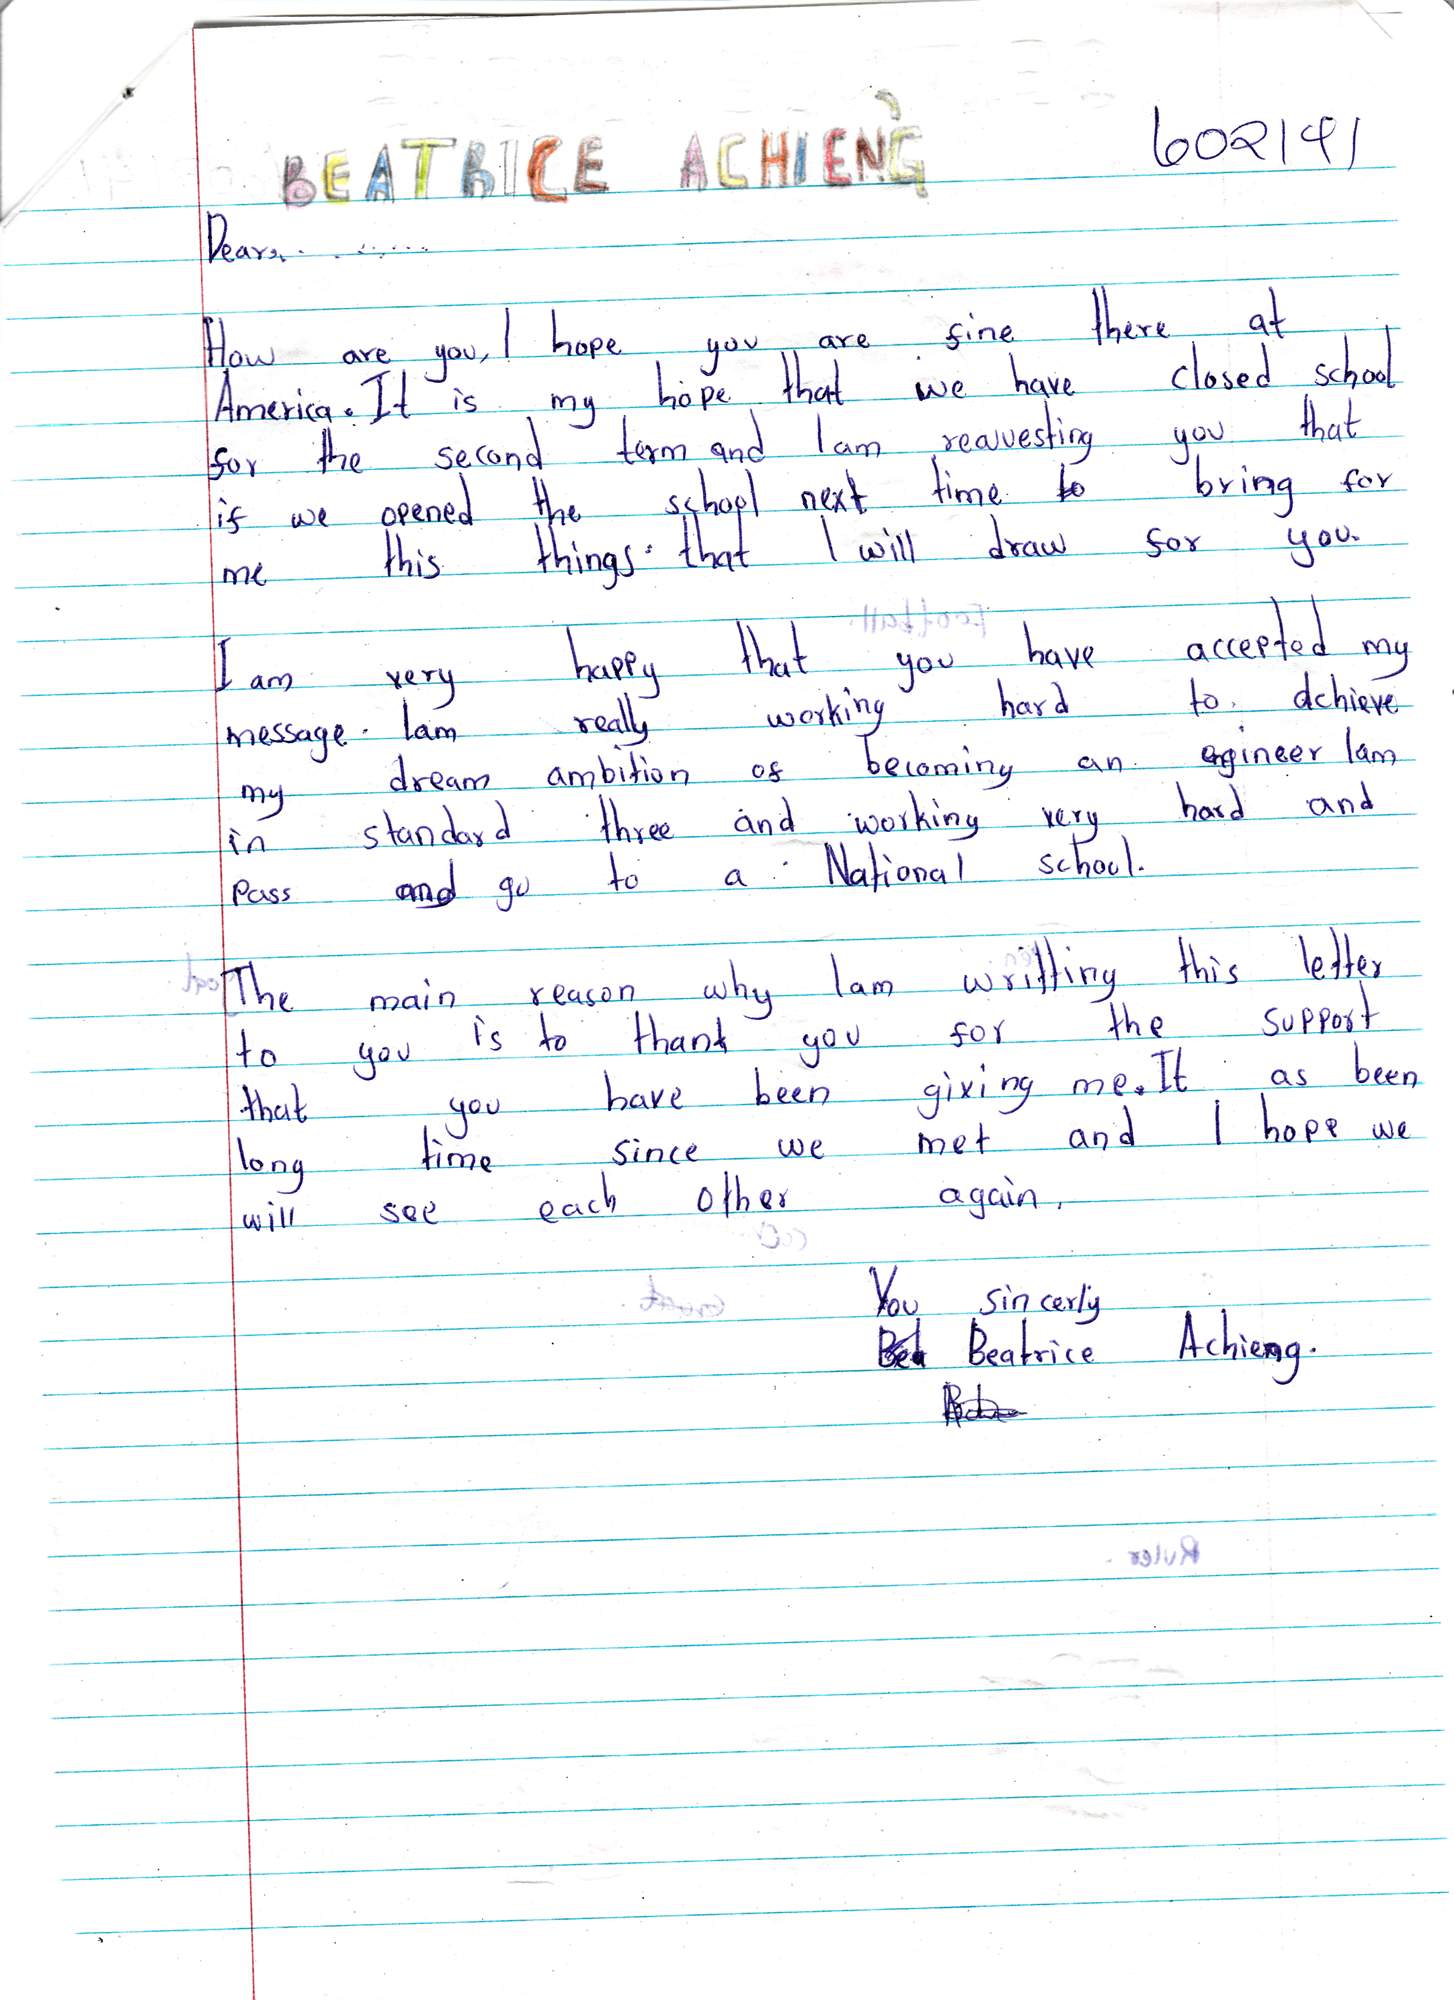 BEATRICE ACHIENG
602141
Dear........
How are you, I hope you are fine there at
America. It is my hope that we have closed school
for the second term and I am reauesting you that
if we opened the school next time to bring for
me this things. that I will draw for you.
I am very happy that you have accepted my
message. Iam really working hard to achieve
my dream ambition of becoming an egineer Iam
in standard three and working very hard and
pass and go to a National school.
The main reason why Iam writting this letter
to you is to thank you for the support
that you have been giving me. It as been
long time since we met and I hope we
will see each other again.
You sincerly
Beatrice Achieng.
Football.
Ruler.